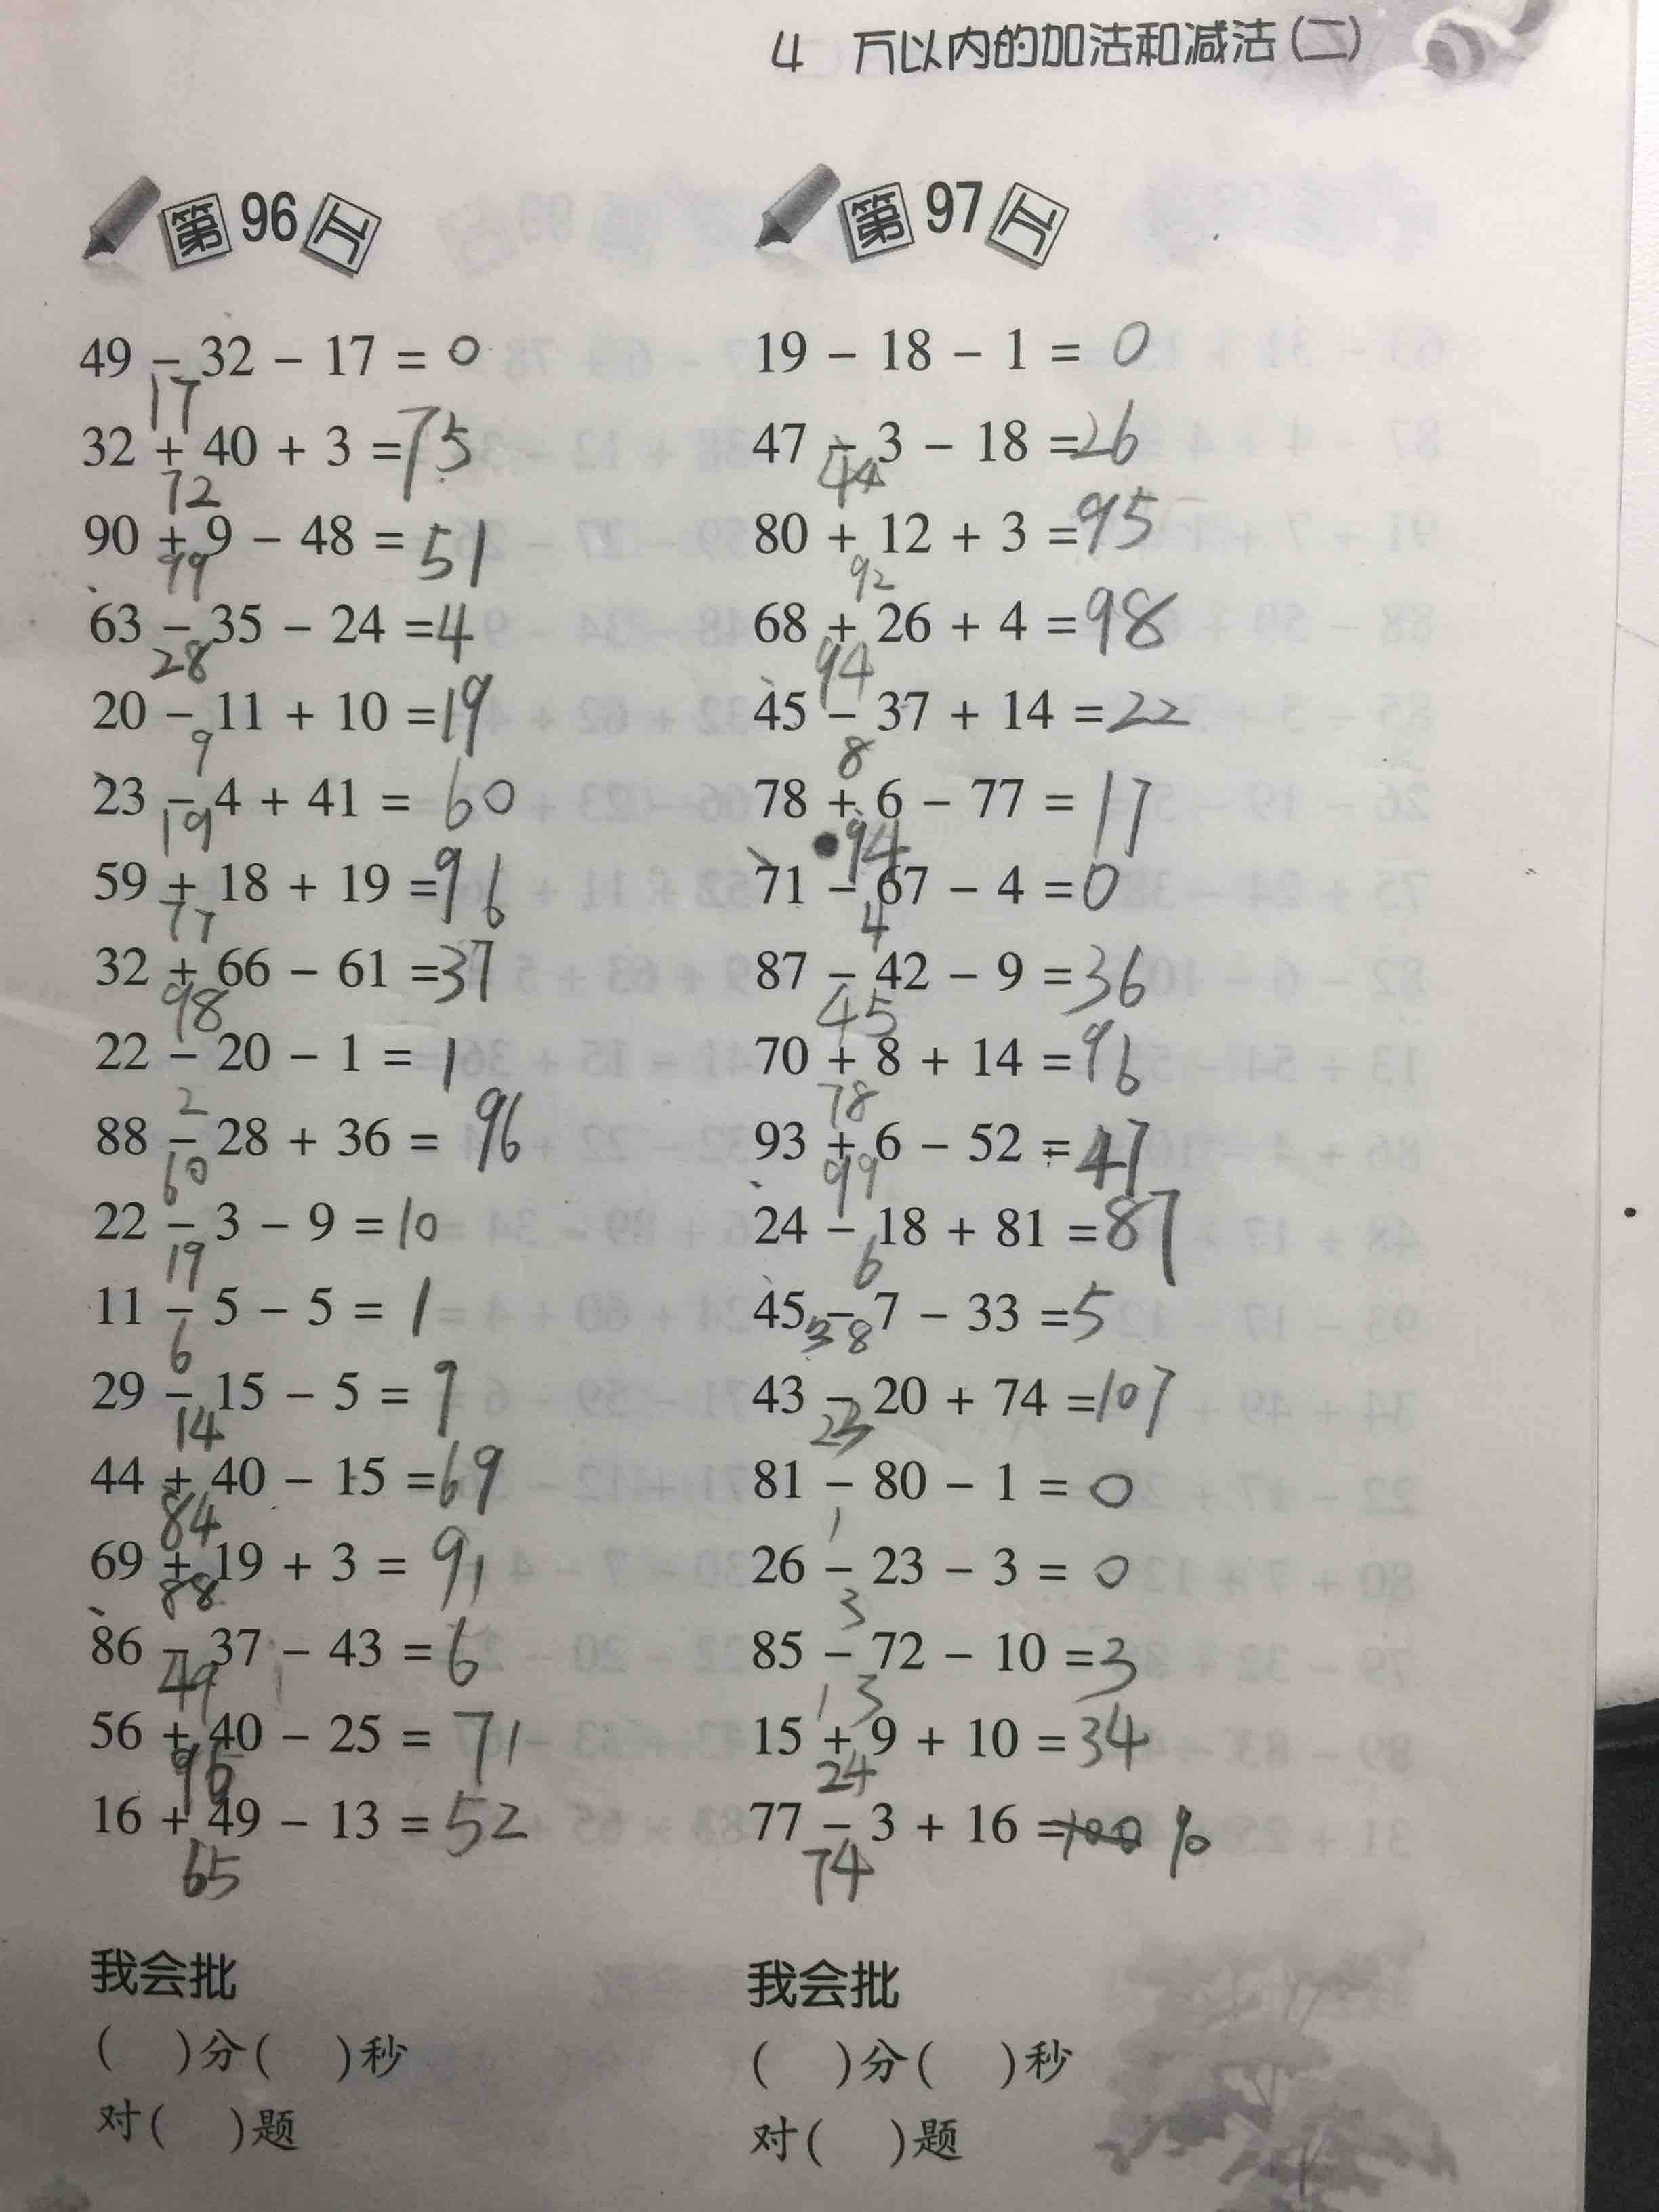 4 万以内的加法和减法(二)
第96天
49 − 32 − 17 = 0
17
32 + 40 + 3 = 75
72
90 + 9 − 48 = 51
99
63 − 35 − 24 = 4
28
20 − 11 + 10 = 19
9
23 − 4 + 41 = 60
19
59 + 18 + 19 = 96
77
32 + 66 − 61 = 37
98
22 − 20 − 1 = 1
2
88 − 28 + 36 = 96
60
22 − 3 − 9 = 10
19
11 − 5 − 5 = 1
6
29 − 15 − 5 = 9
14
44 + 40 − 15 = 69
84
69 + 19 + 3 = 91
88
86 − 37 − 43 = 6
49
56 + 40 − 25 = 71
96
16 + 49 − 13 = 52
65
我会批
( )分( )秒
对( )题
第97天
19 − 18 − 1 = 0
47 − 3 − 18 = 26
44
80 + 12 + 3 = 95
92
68 + 26 + 4 = 98
94
45 − 37 + 14 = 22
8
78 + 6 − 77 = 17
94
71 − 67 − 4 = 0
4
87 − 42 − 9 = 36
45
70 + 8 + 14 = 96
78
93 + 6 − 52 = 47
99
24 − 18 + 81 = 87
6
45 − 7 − 33 = 5
38
43 − 20 + 74 = 107
23
81 − 80 − 1 = 0
1
26 − 23 − 3 = 0
3
85 − 72 − 10 = 3
13
15 + 9 + 10 = 34
24
77 − 3 + 16 = 90
74
我会批
( )分( )秒
对( )题